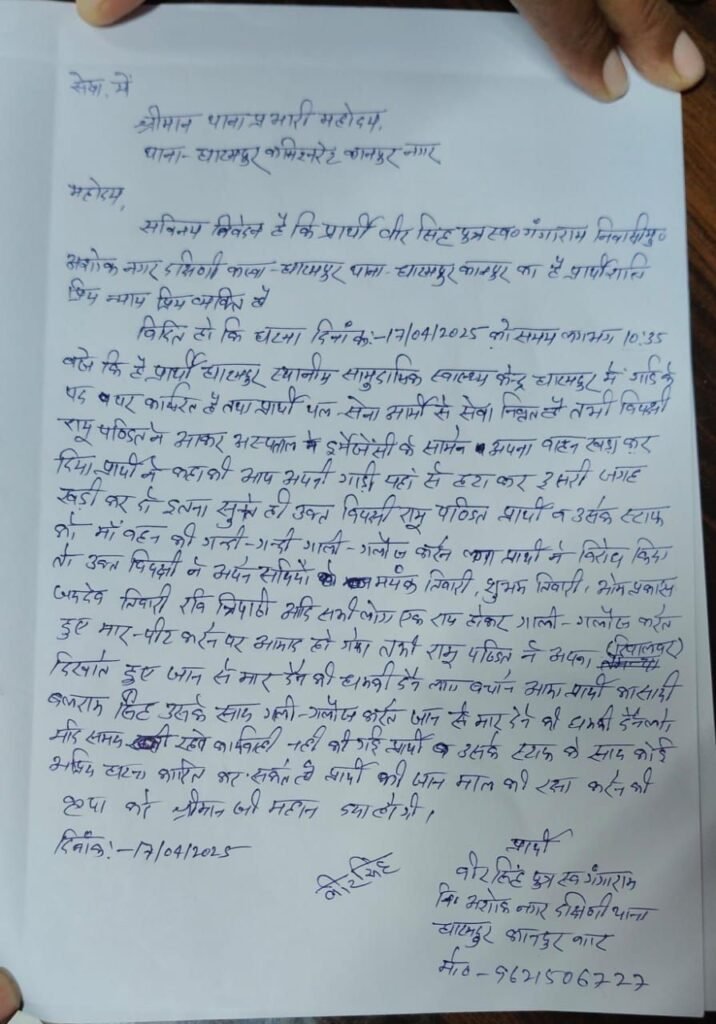 सेवा में
श्रीमान थाना प्रभारी महोदय,
थाना- घाटमपुर कमिश्नरेट कानपुर नगर
महोदय,
सविनय निवेदन है कि प्रार्थी वीर सिंह पुत्र स्व० गंगाराम निवासी मु०
अशोक नगर दक्षिणी कस्बा- घाटमपुर थाना- घाटमपुर कानपुर का है प्रार्थी शान्ति
प्रिय न्याय प्रिय व्यक्ति है
विदित हो कि घटना दिनांक:-17/04/2025 को समय लगभग 10:35
बजे कि है प्रार्थी घाटमपुर स्थानीय सामुदायिक स्वास्थ्य केन्द्र घाटमपुर में गार्ड के
पद पर कार्यरत है तथा प्रार्थी थल-सेना आर्मी से सेवा निवृत है तभी विपक्षी
रामू पण्डित ने आकर अस्पताल के इमरजेंसी के सामने अपना वाहन खड़ा कर
दिया प्रार्थी ने कहा की आप अपनी गाड़ी यहां से हटा कर दूसरी जगह
खड़ी कर दो इतना सुनते ही उक्त विपक्षी रामू पण्डित प्रार्थी व उसके स्टाफ
को माँ बहन की गन्दी-गन्दी गाली-गलौज करने लगा प्रार्थी ने विरोध किया
तो उक्त विपक्षी ने अपने साथियों मयंक तिवारी, शुभम तिवारी, ओमप्रकाश
जयदेव तिवारी रवि त्रिपाठी आदि सभी लोग एक राय होकर गाली-गलौज करते
हुए मार-पीट करने पर आमादा हो गये तभी रामू पण्डित ने अपना (रिवाल्वर)
दिखाते हुए जान से मार देने की धमकी देने लगा बचाने आया प्रार्थी का साथी
बलराम सिंह उसके साथ गाली-गलौज करते जान से मार देने की धमकी देने लगे
यदि समय रहते कार्यवाही नहीं की गई प्रार्थी व उसके स्टाफ के साथ कोई
अप्रिय घटना कारित कर सकते है प्रार्थी की जान माल की रक्षा करने की
कृपा करे श्रीमान जी महान दया होगी।
दिनांक:-17/04/2025
वीर सिंह
प्रार्थी
वीर सिंह पुत्र स्व गंगाराम
नि० अशोक नगर दक्षिणी थाना
घाटमपुर कानपुर नगर
मो०-9621506727